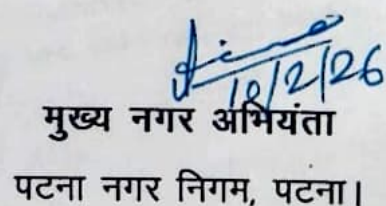 10/2/26
मुख्य नगर अभियंता
पटना नगर निगम, पटना।